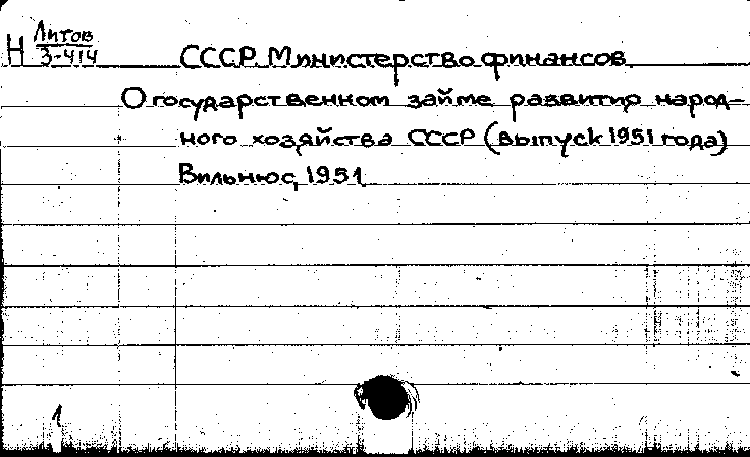 Н Литов
3-414
СССР. Министерство финансов.
О государственном займе развития народ-
ного хозяйства СССР (выпуск 1951 года)
Вильнюс, 1951.
1